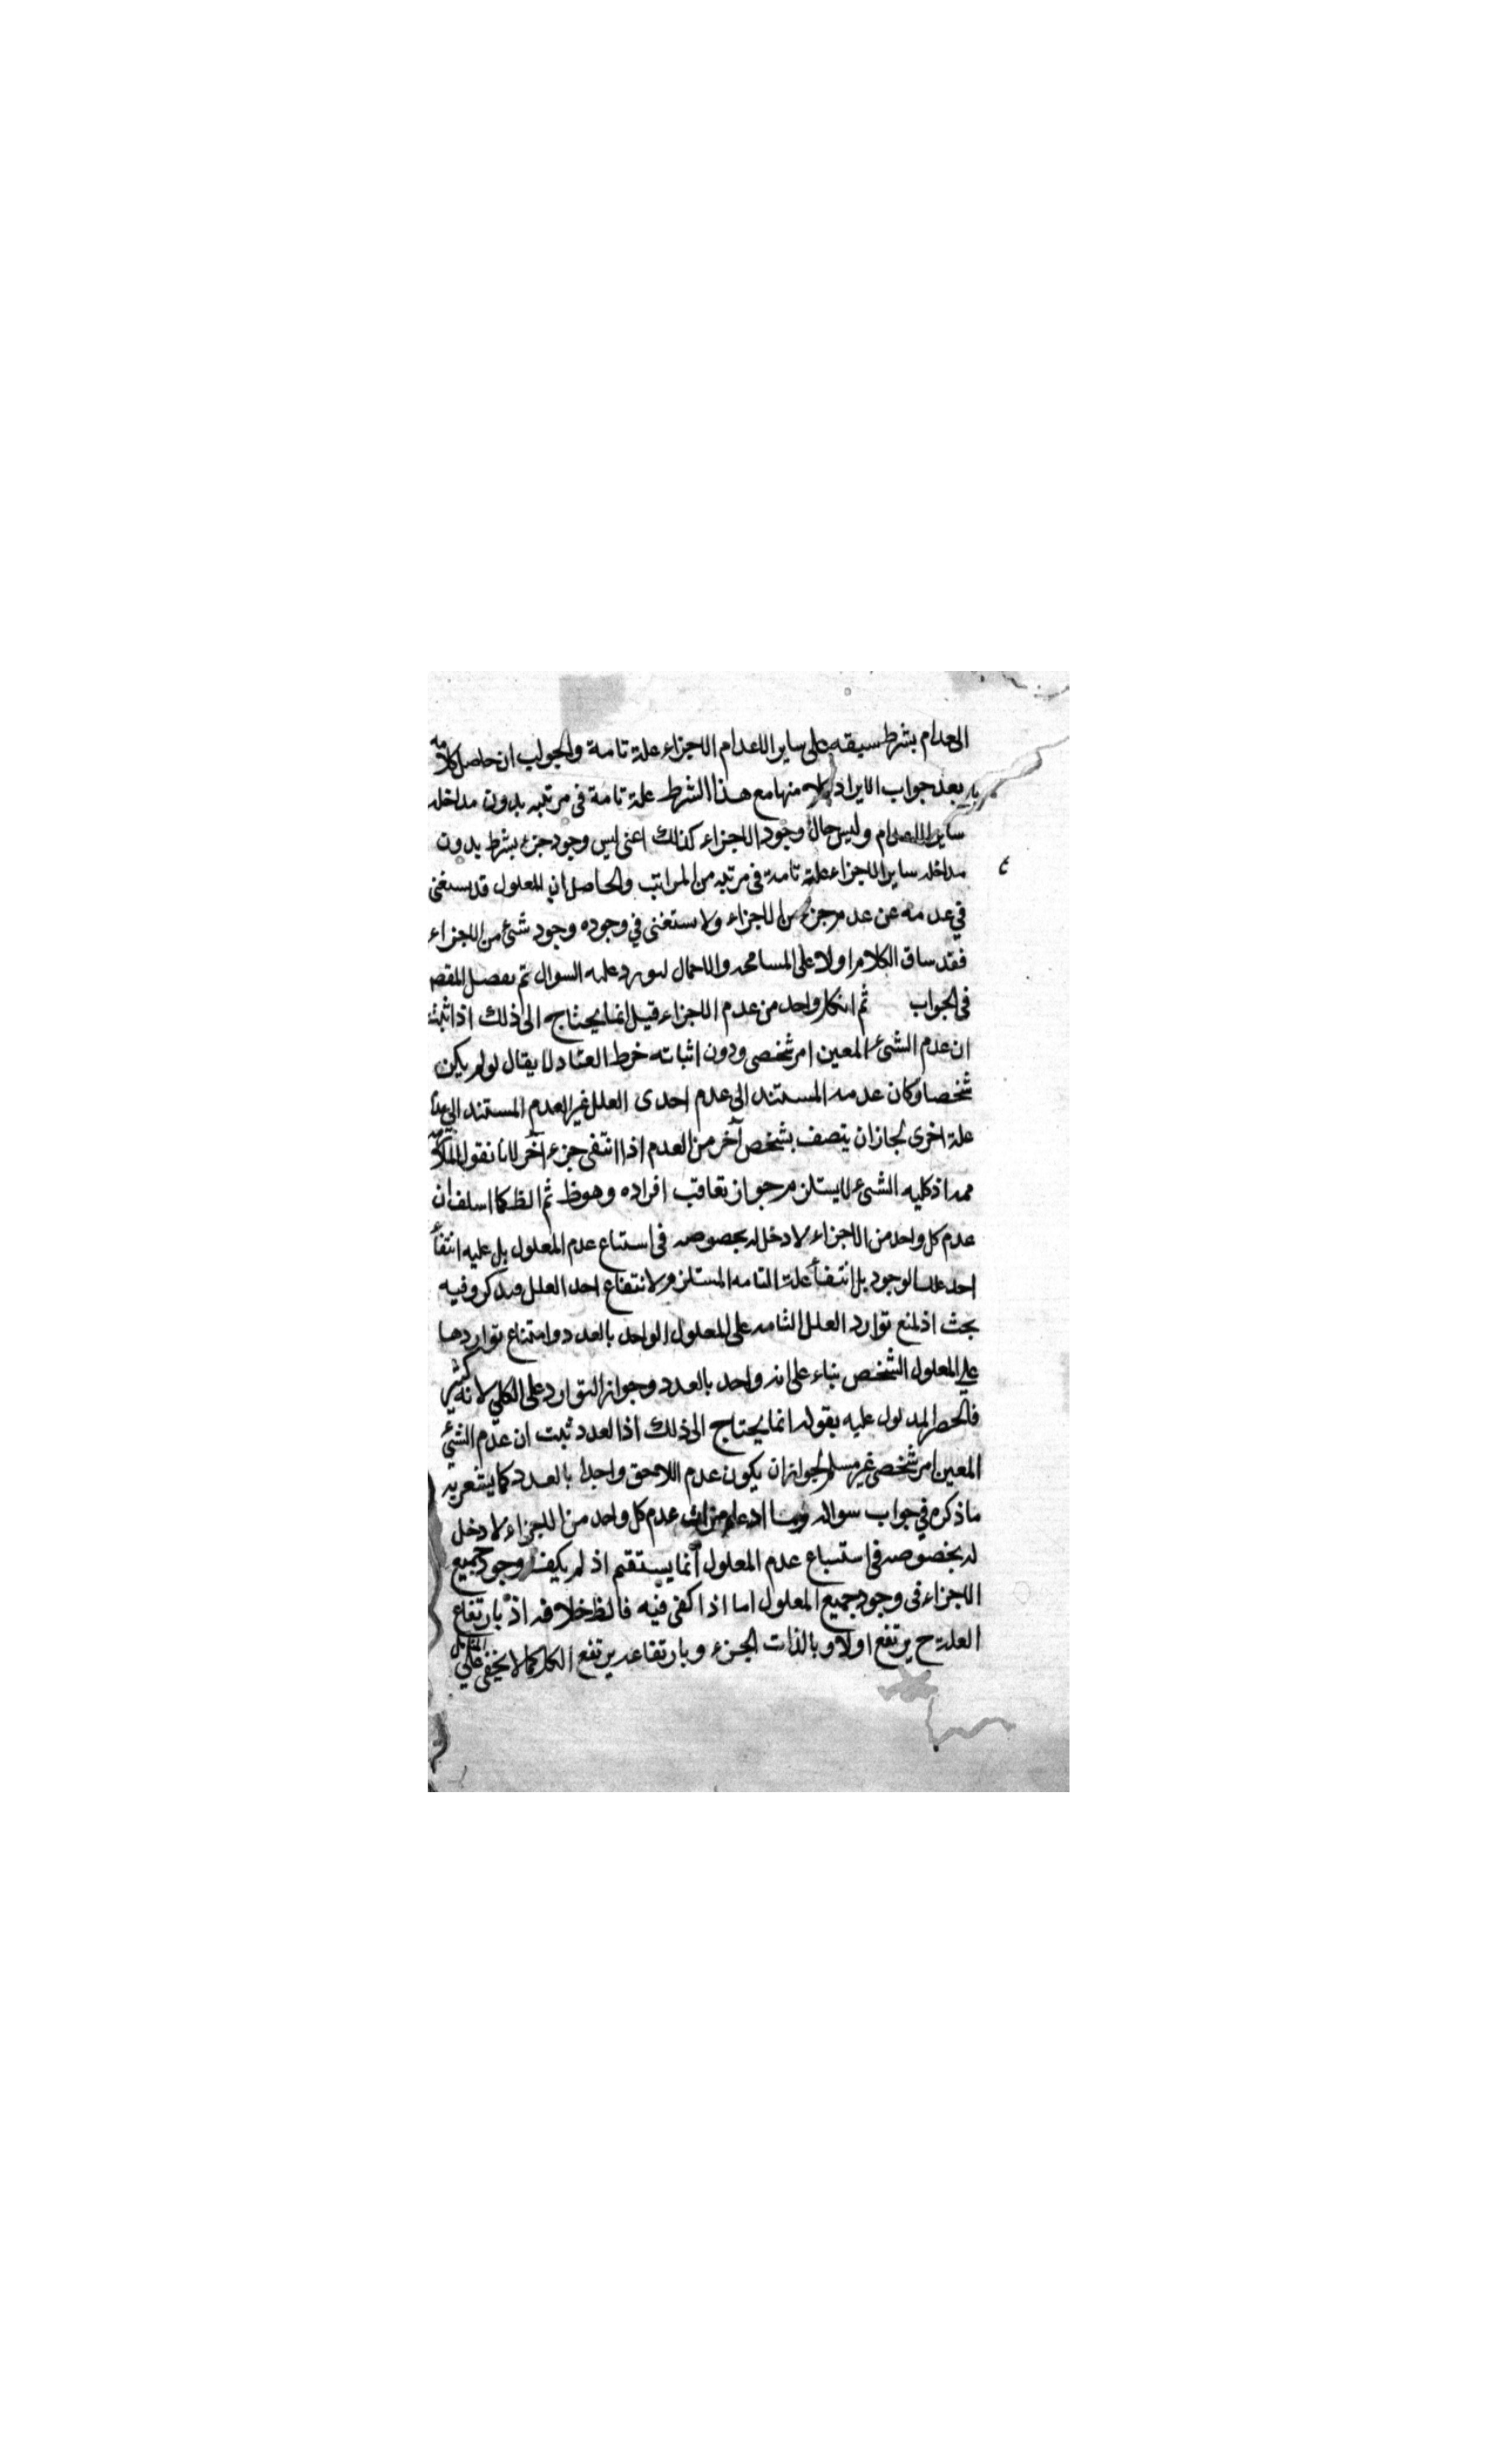 الاعدام بشرط سبقه على ساير الاعدام الاجزاء علة تامة والجواب ان حاصل كلامه
بعد جواب الايراد منها مع هذا الشرط علة تامة فى مرتبه بدون مداخله
ساير الاعدام وليس حال وجود الاجزاء كذلك اعنى ليس وجود جزء بشرط بدون
مداخله ساير الاجزاء علة تامة فى مرتبه من المراتب والحاصل ان المعلول قد يستغنى
في عدمه عن عدم جزء من الاجزاء ولا يستغنى في وجوده وجود شئ من الاجزاء
فقد ساق الكلام اولا على المسامحه والاجمال ليورد عليه السوال ثم يفصل المقص
فى الجواب ثم ان كل واحد من عدم الاجزاء قيل انما يحتاج الى ذلك اذا ثبت
ان عدم الشئ المعين امر شخصى ودون اثباته خرط القتاد لا يقال لو لم يكن
شخصا وكان عدمه المستند الى عدم احدى العلل غير العدم المستند الى عدم
علة اخرى لجاز ان يتصف بشخص آخر من العدم اذا انتفى جزء آخر لانا نقول الملازمة
مم اذ كليه الشىء لا يستلزم جواز تعاقب افراده وهو ظ ثم الظ كما اسلف ان
عدم كل واحد من الاجزاء لا دخل له بخصوصه فى استتباع عدم المعلول بل عليه انتفاء
احد علل الوجود بل انتفاء علة التامه المستلزم لانتفاء احد العلل فتذكر وفيه
بحث اذ لمنع توارد العلل التامه على المعلول الواحد بالعدد وامتناع تواردها
علي المعلول الشخص بناء على انه واحد بالعدد وجواز التوارد على الكلي لانه كثير
فالحصر المدلول عليه بقوله انما يحتاج الى ذلك اذا لعدد ثبت ان عدم الشئ
المعين امر شخصى غير مسلم لجواز ان يكون عدم اللاحق واحدا بالعدد كما يشعر به
ماذكره في جواب سواله وما ادعاه من ان عدم كل واحد من الاجزاء لا دخل
له بخصوصه فى استتباع عدم المعلول انما يستقيم اذ لم يكف وجود جميع
الاجزاء فى وجود جميع المعلول اما اذا كفى فيه فالظ خلافه اذ بارتفاع
العلة ح يرتفع اولا وبالذات الجزء وبارتفاعه يرتفع الكل كما لا يخفى علي المتامل